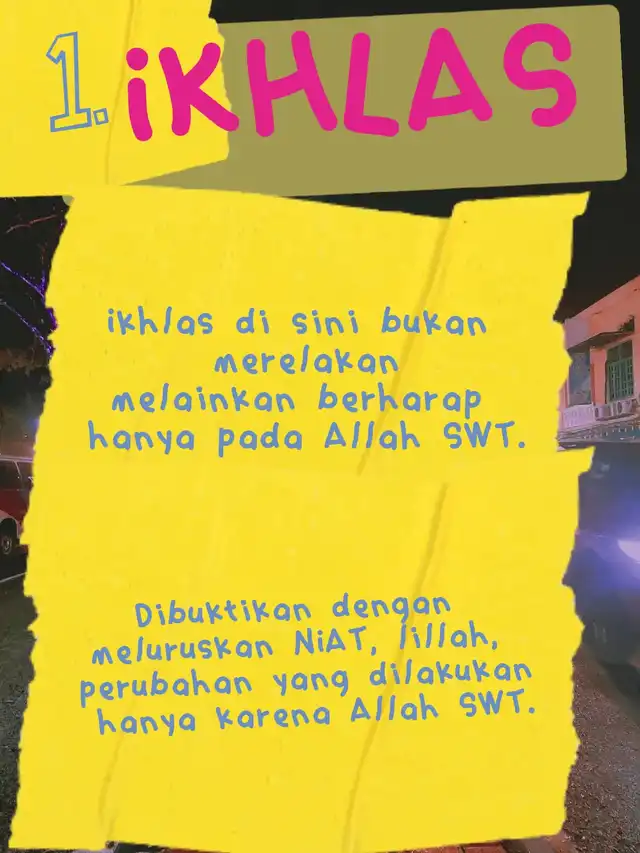 1. iKHLAS
ikhlas di sini bukan
merelakan
melainkan berharap
hanya pada Allah SWT.
Dibuktikan dengan
meluruskan NiAT, lillah,
perubahan yang dilakukan
hanya karena Allah SWT.